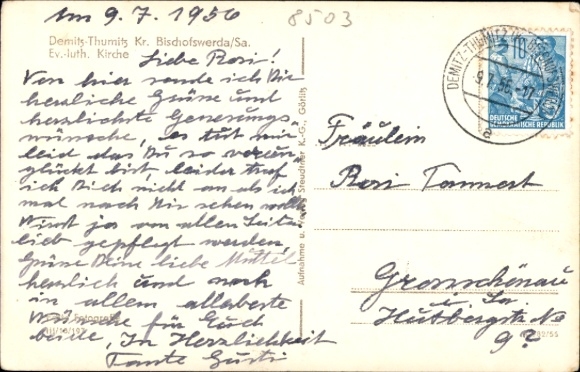 Am 9.7.1956
8503
Demitz-Thumitz Kr. Bischofswerda/Sa.
Ev.-luth. Kirche
Liebe Rosi!
Von hier sende ich Dir
herzliche Grüße und
herzlichste Genesungs
wünsche, es tut mir
leid das Du so verun,
glückt bist, leider traf
ich Dich nicht an als ich
mal nach Dir sehen wollte
Wirst ja von allen Seiten
lieb gepflegt werden,
Grüße Deine liebe Muttel
herzlich und noch
in allem allerbeste
Wünsche für Euch
beide, In Herzlichkeit
Tante Gusti
Aufnahme u. Verlag Steudtner K.-G., Görlitz
DEMITZ-THUMITZ
9.7.56.-17
a
DEUTSCHE
DEMOKRATISCHE REPUBLIK
Fräulein
Rosi Tannert
Grosschönau
i. Sa.
Hutbergstr. No
9?